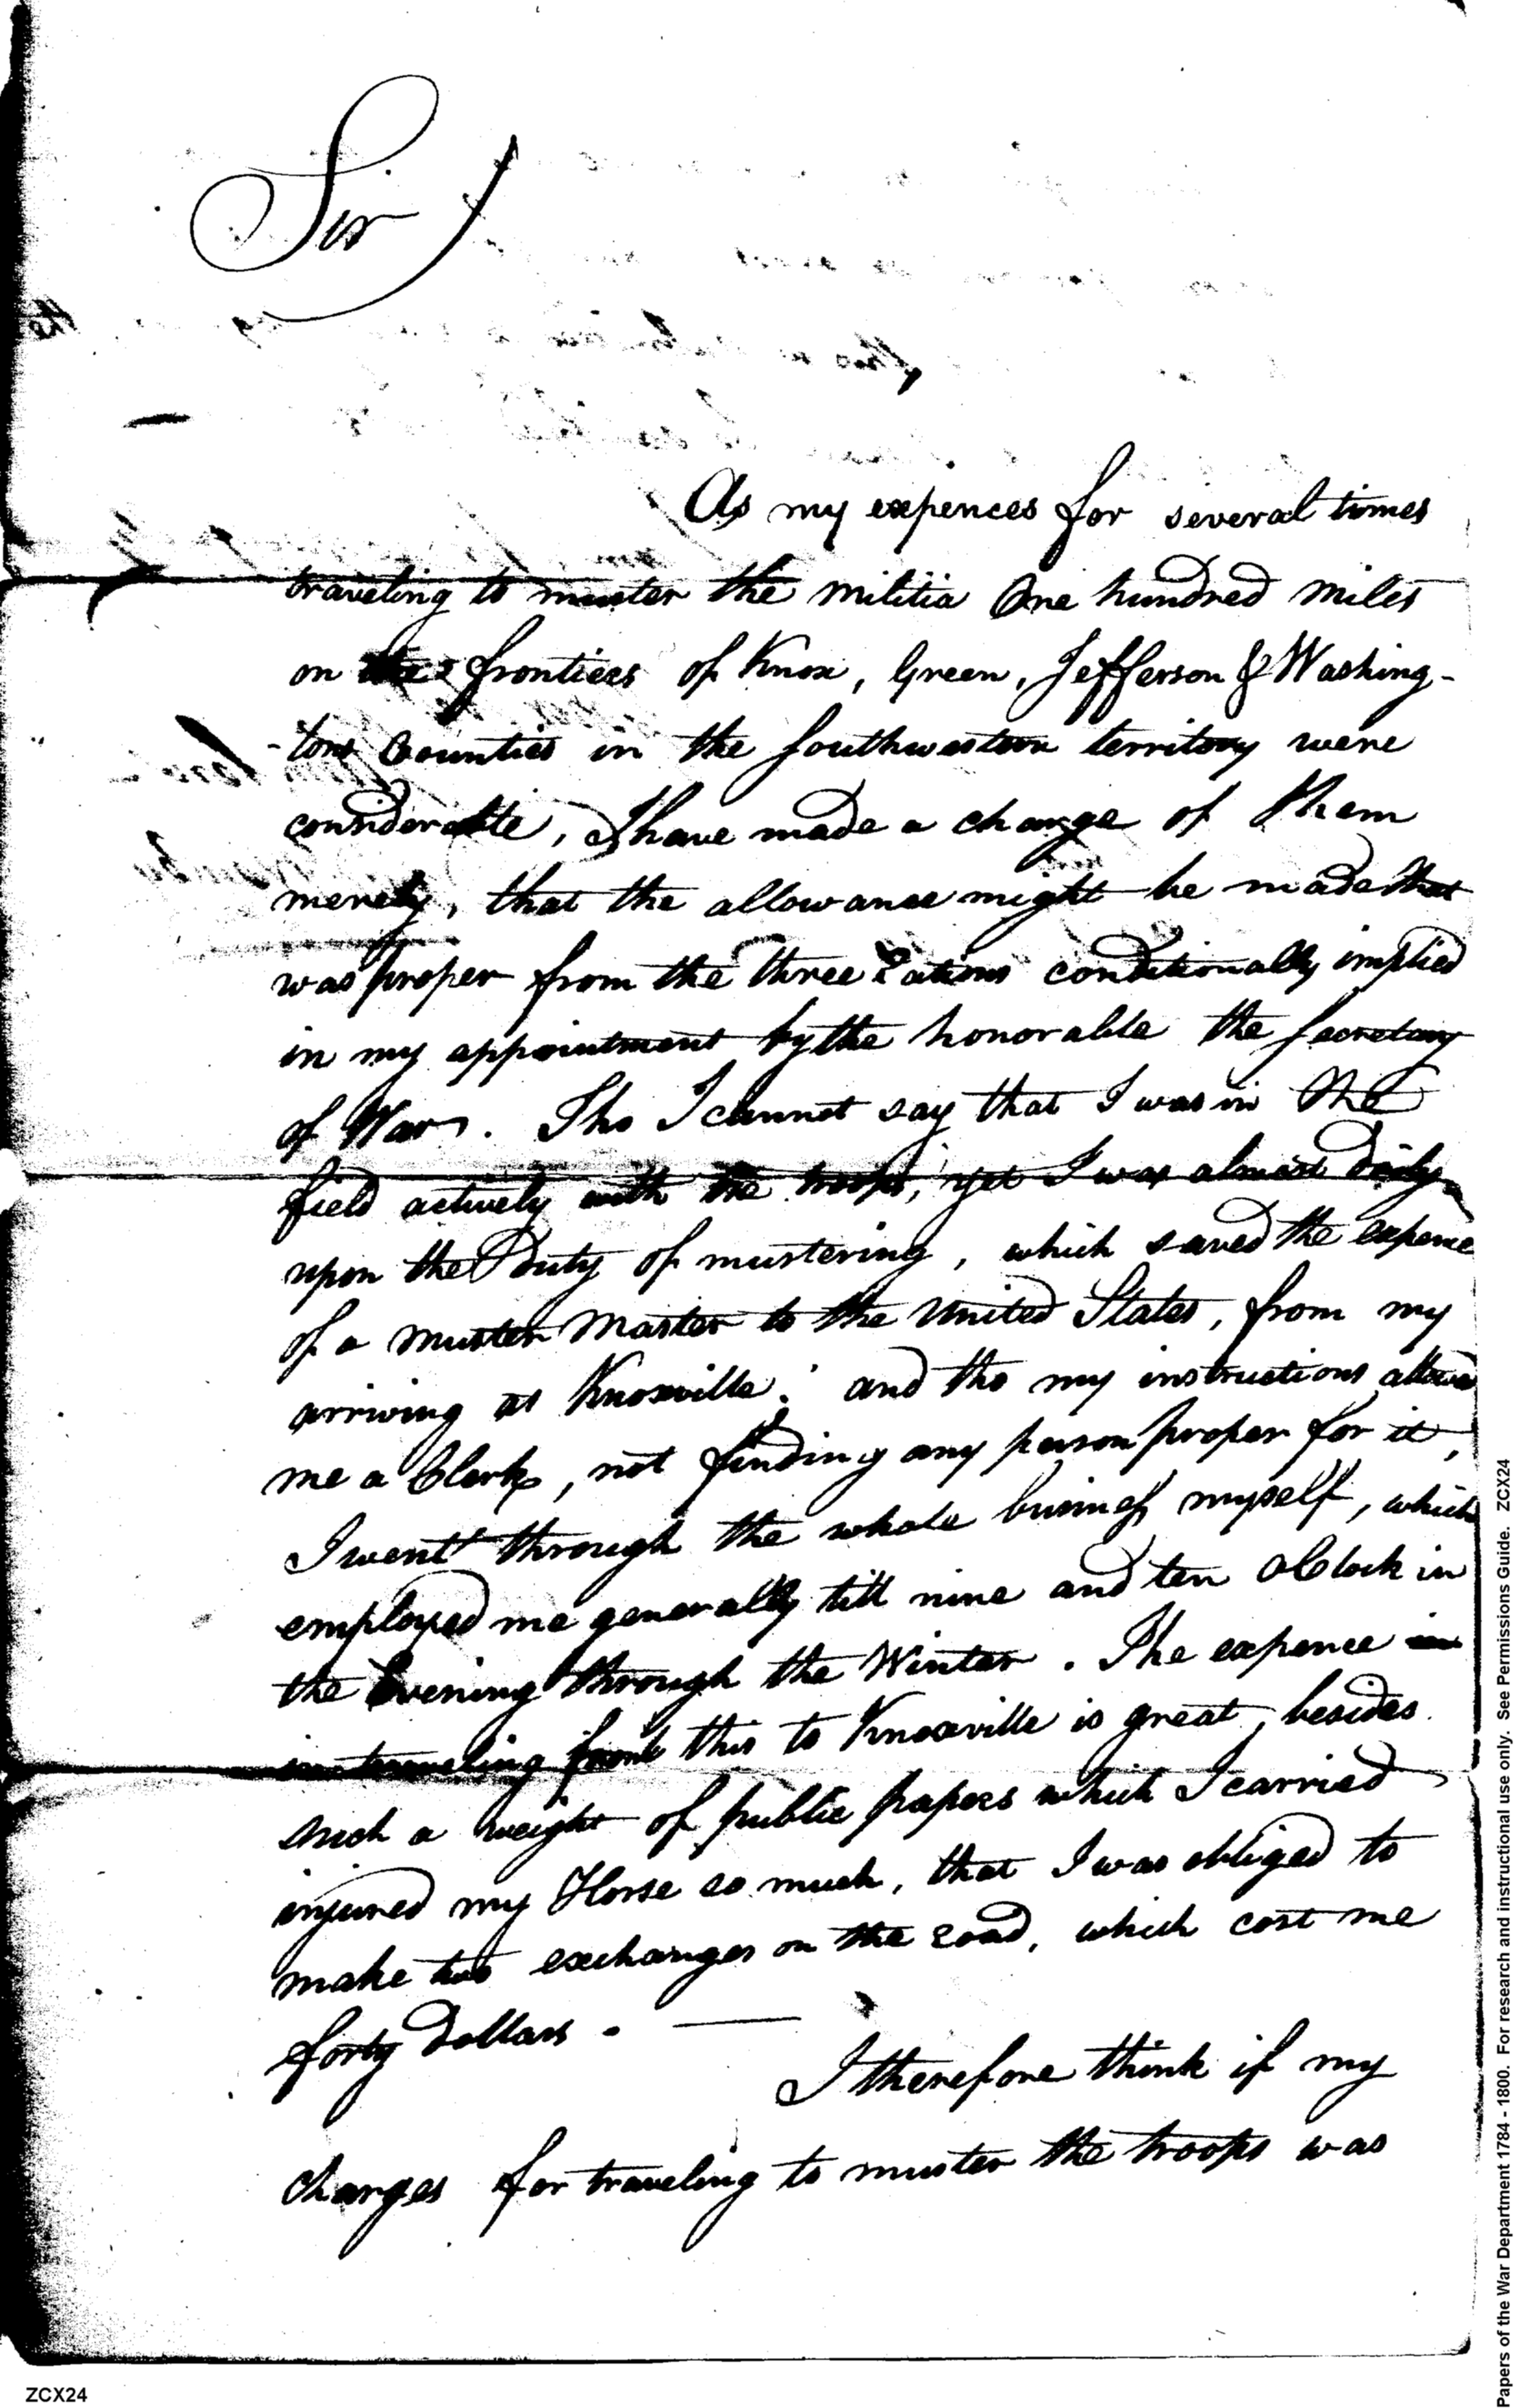 Sir
As my expences for several times
traveling to muster the militia One hundred miles
on the frontiers of Knox, Green, Jefferson & Washing-
-tons Counties in the Southwestern territory were
considerable, I have made a charge of them
merely, that the allowance might be made that
was proper from the three rations conditionally implied
in my appointment by the honorable the Secretary
of War. Tho I cannot say that I was in the
field actively with the troops, yet I was almost daily
upon the Duty of mustering, which saved the expence
of a muster Master to the United States, from my
arriving at Knoxville; and tho my instructions allowed
me a Clerk, not finding any person proper for it,
I went through the whole business myself, which
employed me generally till nine and ten oClock in
the Evening through the Winter. The expence in
in traveling from this to Knoxville is great, besides
such a weight of public papers which I carried
injured my Horse so much, that I was obliged to
make two exchanges on the road, which cost me
forty Dollars. —
I therefore think if my
charges for traveling to muster the troops was
ZCX24
Papers of the War Department 1784 - 1800. For research and instructional use only. See Permissions Guide. ZCX24